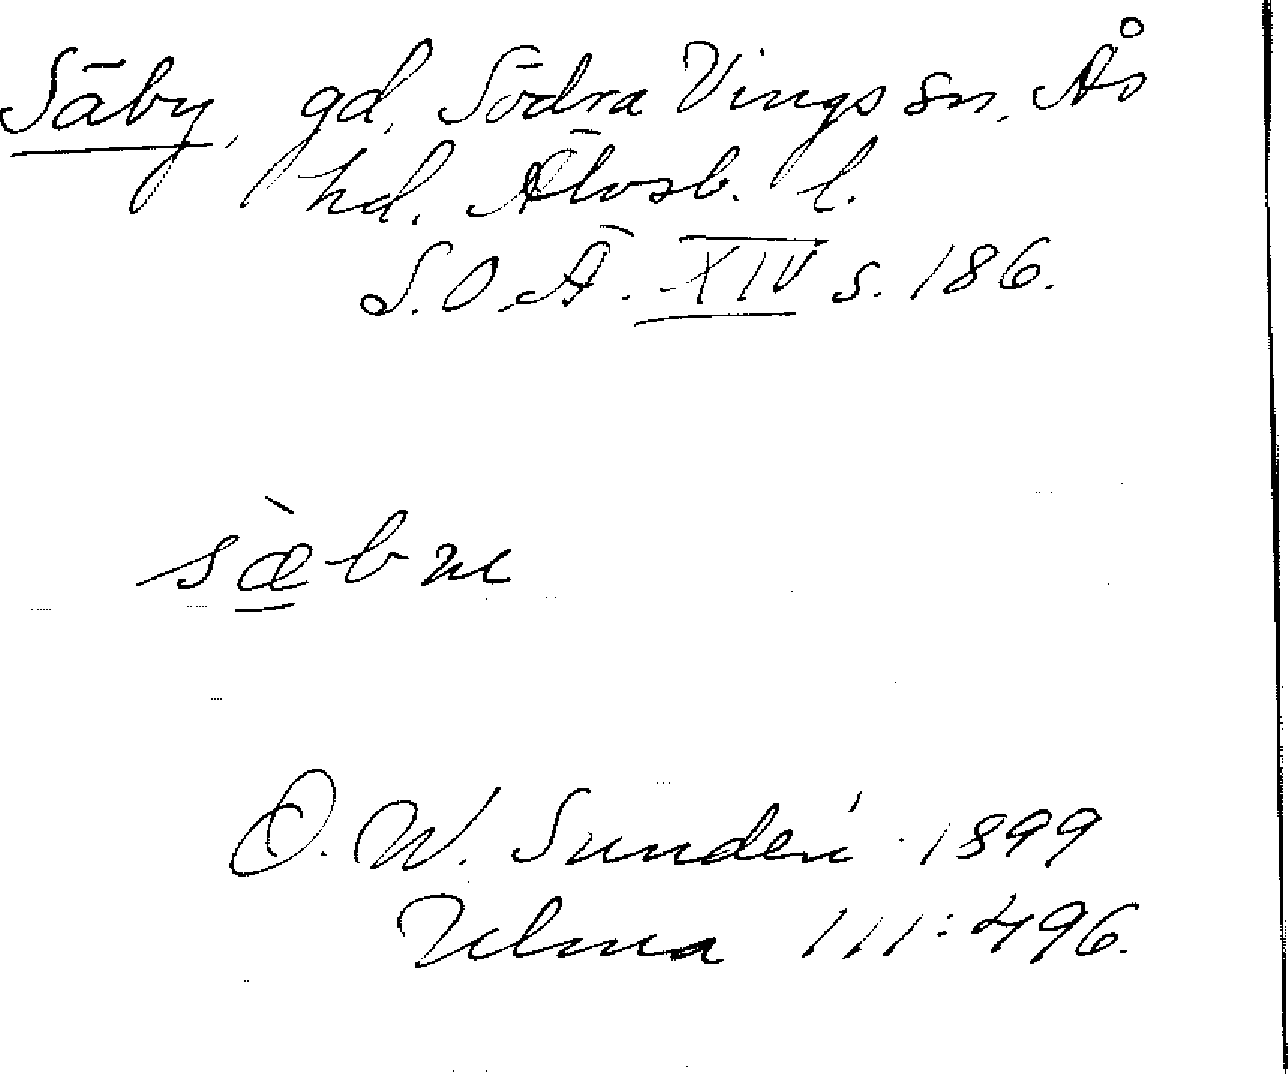 Säby, gd, Södra Vings sn, Ås
hd. Älvsb. l.
S.O.Ä. XIV s. 186.
sæ̀bu
O. W. Sundén 1899
Ulma 111:496.